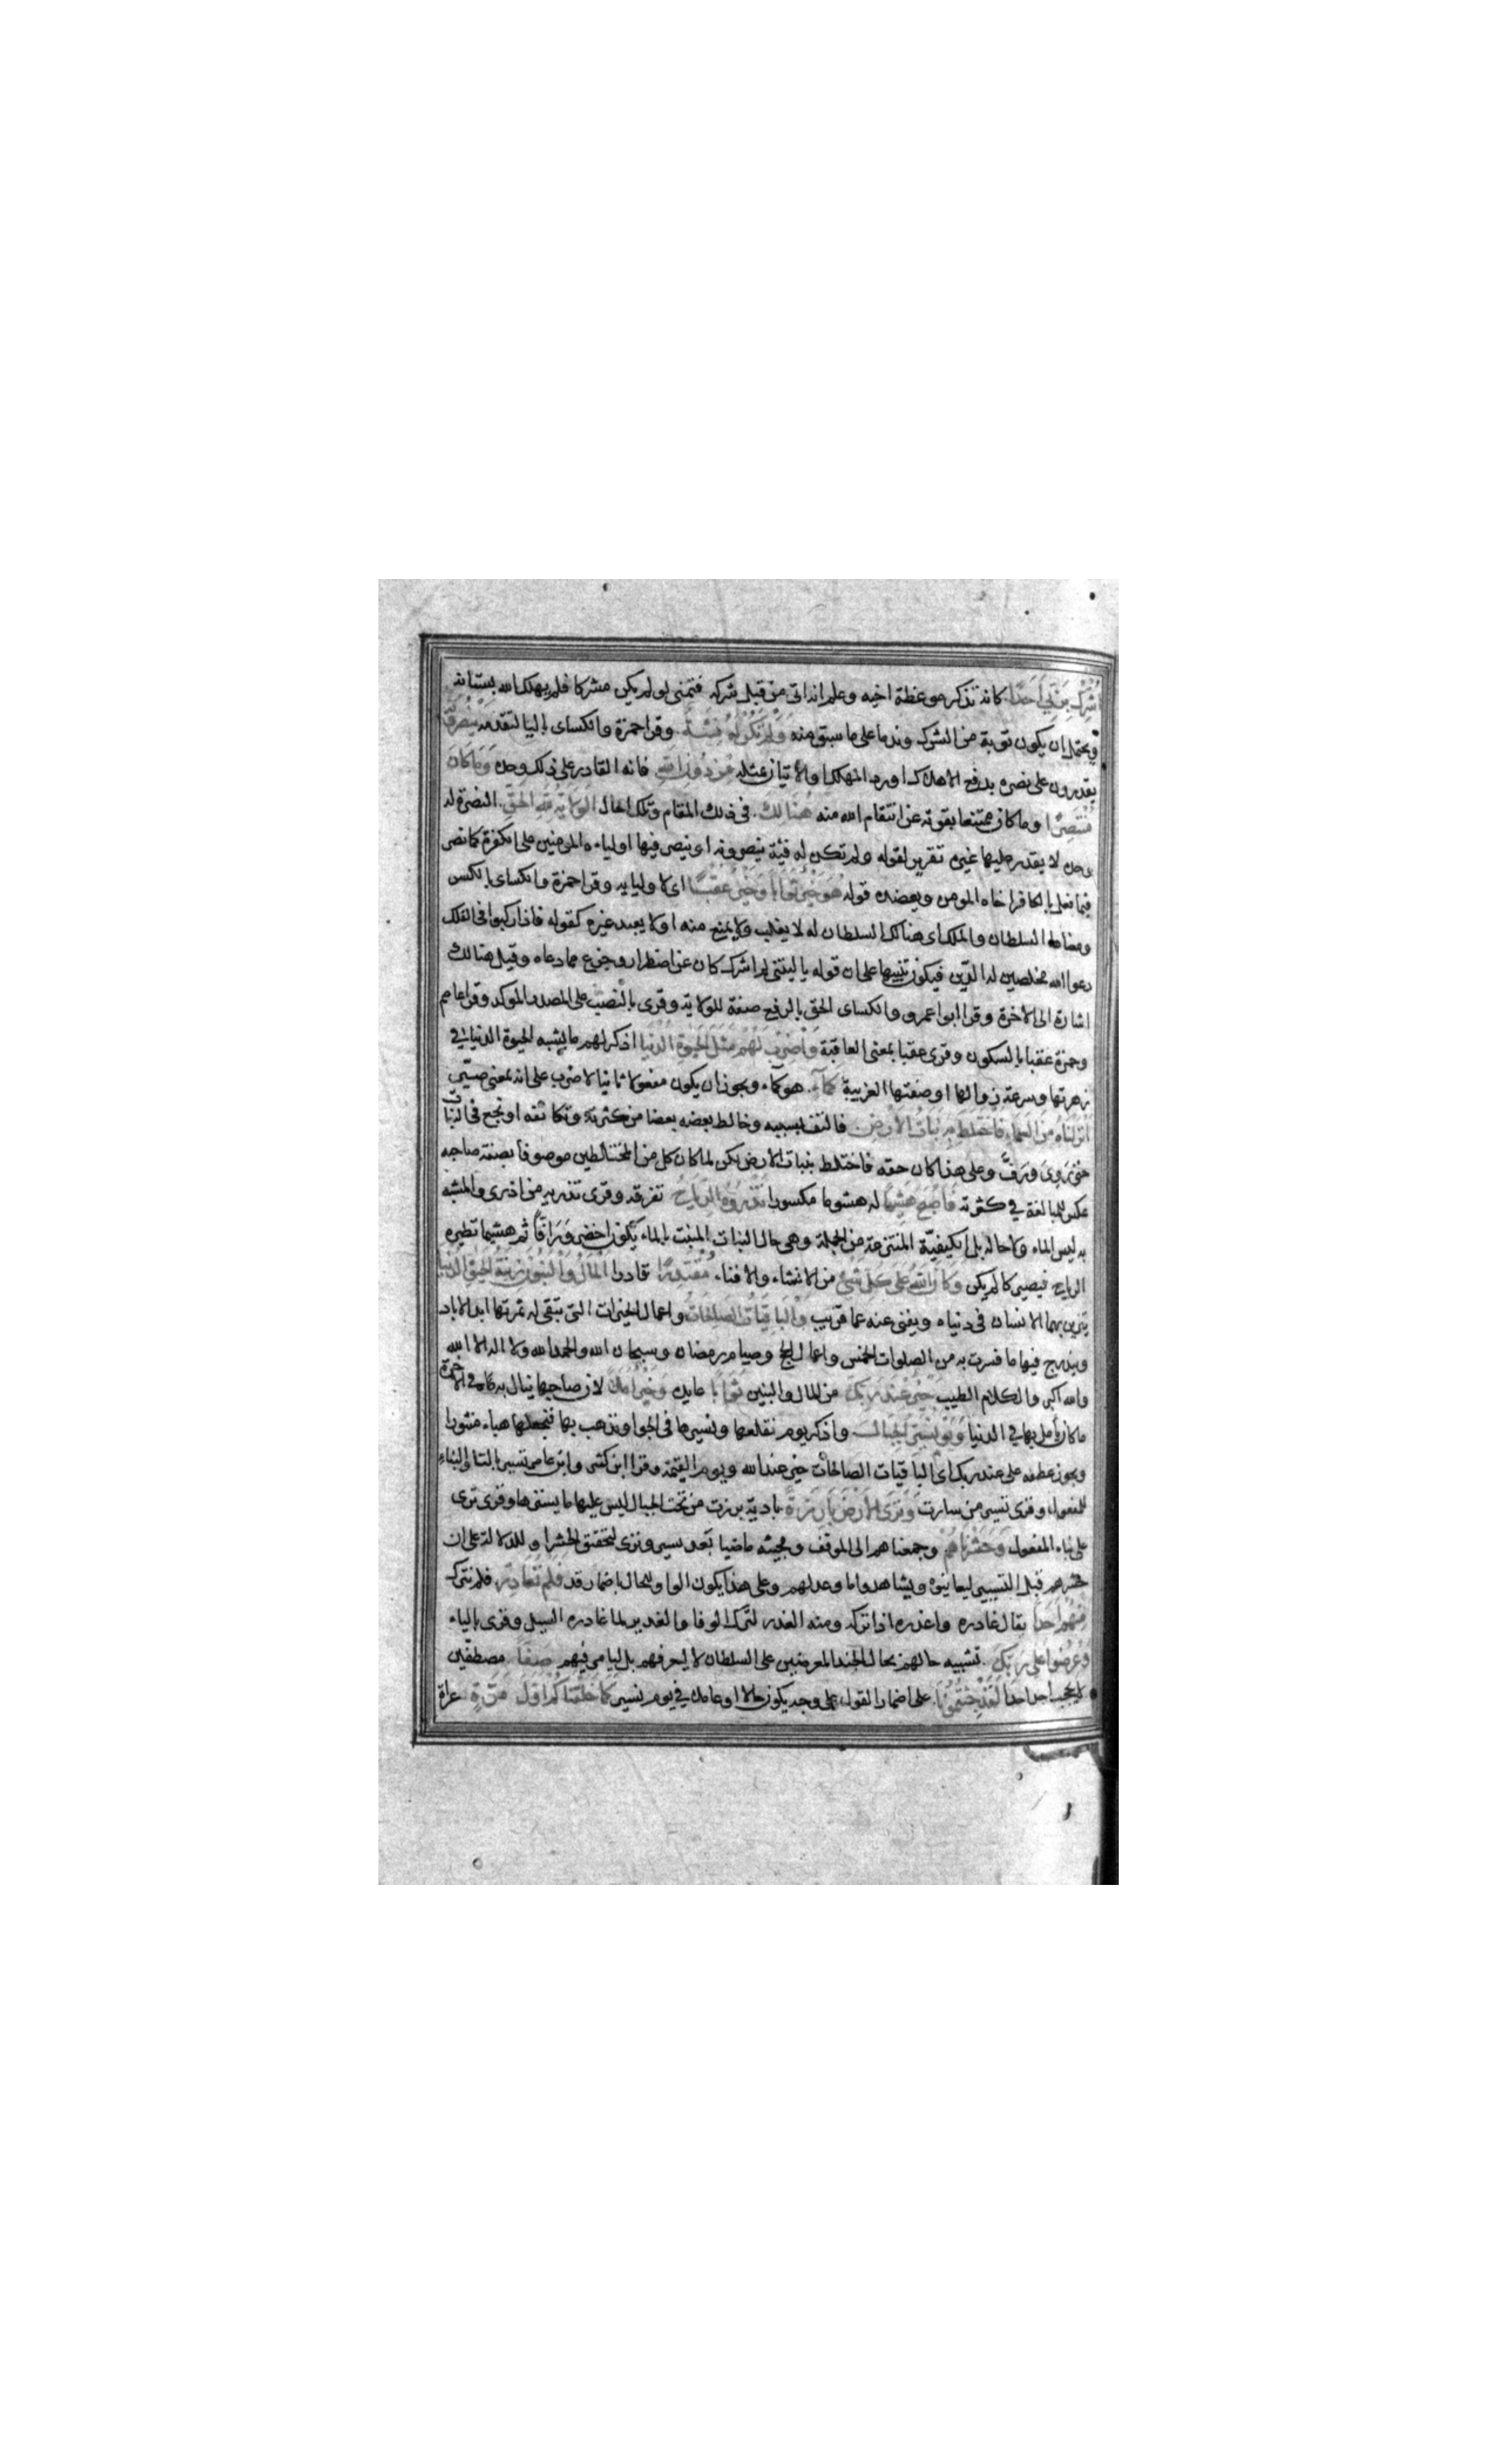 أُشْرِكْ بِرَبِّي أَحَدًا كانه تذكر موعظة اخيه وعلم انه اتى من قبل شركه فتمنى لو لم يكن مشركا فلم يهلك الله بستانه
ويحتمل ان يكون توبة من الشرك وندما على ما سبق منه وَلَمْ تَكُنْ لَهُ فِئَةٌ وقرا حمزة والكسائى باليا لتقدمه يَنْصُرُونَهُ
يقدرون على نصره بدفع الاهلاك او رد المهلك والاتيان بمثله مِنْ دُونِ اللهِ فانه القادر على ذلك وحده وَمَا كَانَ
مُنْتَصِرًا وما كان ممتنعا بقوته عن انتقام الله منه هُنَالِكَ فى ذلك المقام وتلك الحال الْوَلَايَةُ لِلهِ الْحَقِّ النصرة له
وحده لا يقدر عليها غيره تقرير لقوله ولم تكن له فئة ينصرونه او ينصر فيها اولياءه المومنين على الكفرة كما نصر
فيما فعل بالكافر اخاه المومن ويعضده قوله هُوَ خَيْرٌ ثَوَابًا وَخَيْرٌ عُقْبًا اى لاوليايه وقرا حمزة والكسائى بالكسر
ومعناها السلطان والملك اى هنالك السلطان له لا يغلب ولا يمنع منه او لا يعبد غيره كقوله فاذا ركبوا فى الفلك
دعوا الله مخلصين له الدين فيكون تنبيها على ان قوله يا ليتنى لم اشرك كان عن اضطرار وجزع مما دهاه وقيل هنالك
اشارة الى الاخرة وقرا ابوا عمرو والكسائى الحق بالرفع صفة للولاية وقرى بالنصب على المصدر الموكد وقرا عاصم
وحمزة عقبا بالسكون وقرى عقبا بمعنى العاقبة وَاضْرِبْ لَهُمْ مَثَلَ الْحَيٰوةِ الدُّنْيَا اذكر لهم ما يشبه الحيوة الدنيا فى
زهرتها وسرعة زوالها او صفتها الغريبة كَمَاءٍ هو كماء ويجوز ان يكون مفعولا ثانيا لاضرب على انه بمعنى صير
أَنْزَلْنَاهُ مِنَ السَّمَاءِ فَاخْتَلَطَ بِهِ نَبَاتُ الْأَرْضِ فالتف بسببه وخالط بعضه بعضا من كثرته وتكاثفه او نجع فى النبات
حتى روى ورفّ وعلى هذا كان حقه فاختلط بنبات الارض لكن لما كان كل من المختلطين موصوفا بصفة صاحبه
عكس للمبالغة في كثرته فَأَصْبَحَ هَشِيمًا له هشوما مكسورا تَذْرُوهُ الرِّيَاحُ تفرقه وقرى تذريه من اذرى والمشبه
به ليس الماء ولا حاله بل الكيفيّة المنتزعة من الجملة وهى حال النبات المنبت بالماء يكون اخضر ورافًا ثم هشيما تطيره
الرياح فيصير كان لم يكن وَكَانَ اللهُ عَلَى كُلِّ شَيْءٍ من الانشاء والافناء مُقْتَدِرًا قادرا الْمَالُ وَالْبَنُونَ زِينَةُ الْحَيٰوةِ الدُّنْيَا
يتزين بهما الانسان فى دنياه ويفنى عنه عما قريب وَالْبَاقِيَاتُ الصَّالِحَاتُ واعمال الخيرات التى تبقى له ثمرتها ابد الاباد
ويندرج فيها ما فسرت به من الصلوات الخمس واعمال الحج وصيام رمضان وسبحان الله والحمد لله ولا اله الا الله
والله اكبر والكلام الطيب خَيْرٌ عِنْدَ رَبِّكَ من المال والبنين ثَوَابًا عايدة وَخَيْرٌ أَمَلًا لان صاحبها ينال به فى الاخرة
ما كان يأمل بها فى الدنيا وَيَوْمَ نُسَيِّرُ الْجِبَالَ واذكر يوم نقلعها ونسيرها فى الجو او نذهب بها فنجعلها هباء منثورا
ويجوز عطفه على عند ربك اى الباقيات الصالحات خير عند الله ويوم القيمة وقرا ابن كثير وابن عامر تسير بالتا والبناء
للمفعول وقرى تسير من سارت وَتَرَى الْأَرْضَ بَارِزَةً بادية برزت من تحت الجبال ليس عليها ما يسترها وقرى ترى
على بناء المفعول وَحَشَرْنَاهُمْ وجمعناهم الى الموقف ومجيئه ماضيا بعد نسير وترى لتحقق الحشر او للدلالة على ان
حشرهم قبل التسيير ليعاينوا ويشاهدوا ما وعد لهم وعلى هذا يكون الواو للحال باضمار قد فَلَمْ نُغَادِرْ فلم نترك
مِنْهُمْ أَحَدًا يقال غادره واغدره اذا تركه ومنه الغدر لترك الوفا والغدير لما غادره السيل وقرى بالياء
وَعُرِضُوا عَلَى رَبِّكَ تشبيه حالهم بحال الجند المعرضين على السلطان لا ليعرفهم بل ليامر فيهم صَفًّا مصطفين
لا يحجب احد احدا لَقَدْ جِئْتُمُونَا على اضمار القول على وجه يكون حالا او عاملا فى يوم نسير كَمَا خَلَقْنَاكُمْ أَوَّلَ مَرَّةٍ عراة